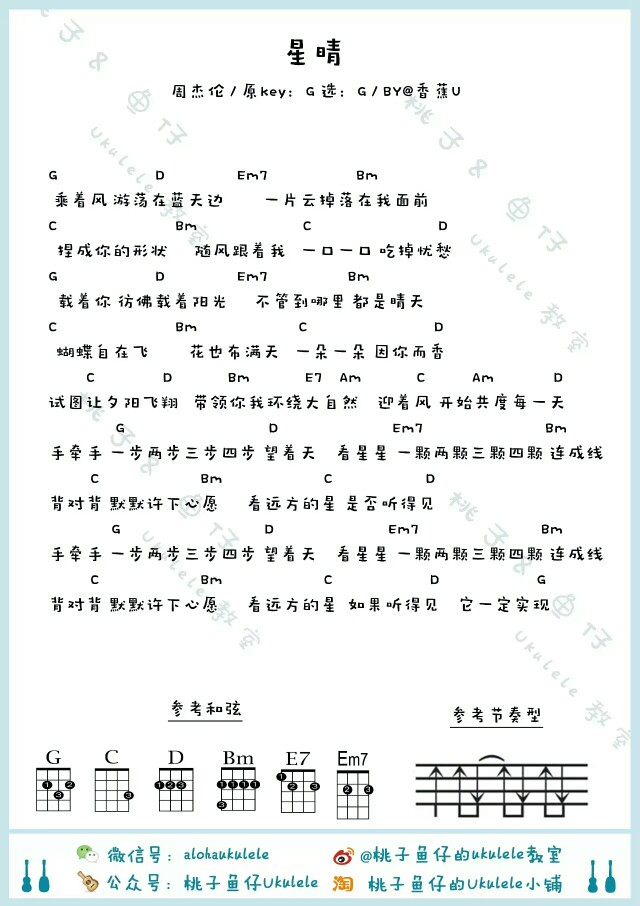 星晴
周杰伦/原key：G 选：G/BY@香蕉U
G D Em7 Bm
乘着风 游荡在蓝天边 一片云掉落在我面前
C Bm C D
捏成你的形状 随风跟着我 一口一口 吃掉忧愁
G D Em7 Bm
载着你 彷佛载着阳光 不管到哪里 都是晴天
C Bm C D
蝴蝶自在飞 花也布满天 一朵一朵 因你而香
C D Bm E7 Am C Am D
试图让夕阳飞翔 带领你我环绕大自然 迎着风 开始共度每一天
G D Em7 Bm
手牵手 一步两步三步四步 望着天 看星星 一颗两颗三颗四颗 连成线
C Bm C D
背对背 默默许下心愿 看远方的星 是否听得见
G D Em7 Bm
手牵手 一步两步三步四步 望着天 看星星 一颗两颗三颗四颗 连成线
C Bm C D G
背对背 默默许下心愿 看远方的星 如果听得见 它一定实现
参考和弦
参考节奏型
G C D Bm E7 Em7
微信号：alohaukulele
@桃子鱼仔的ukulele教室
公众号：桃子鱼仔Ukulele
淘 桃子鱼仔的Ukulele小铺
桃子&鱼仔
Ukulele教室
桃子&鱼仔
Ukulele教室
桃子&鱼仔
Ukulele教室
桃子&鱼仔
Ukulele教室